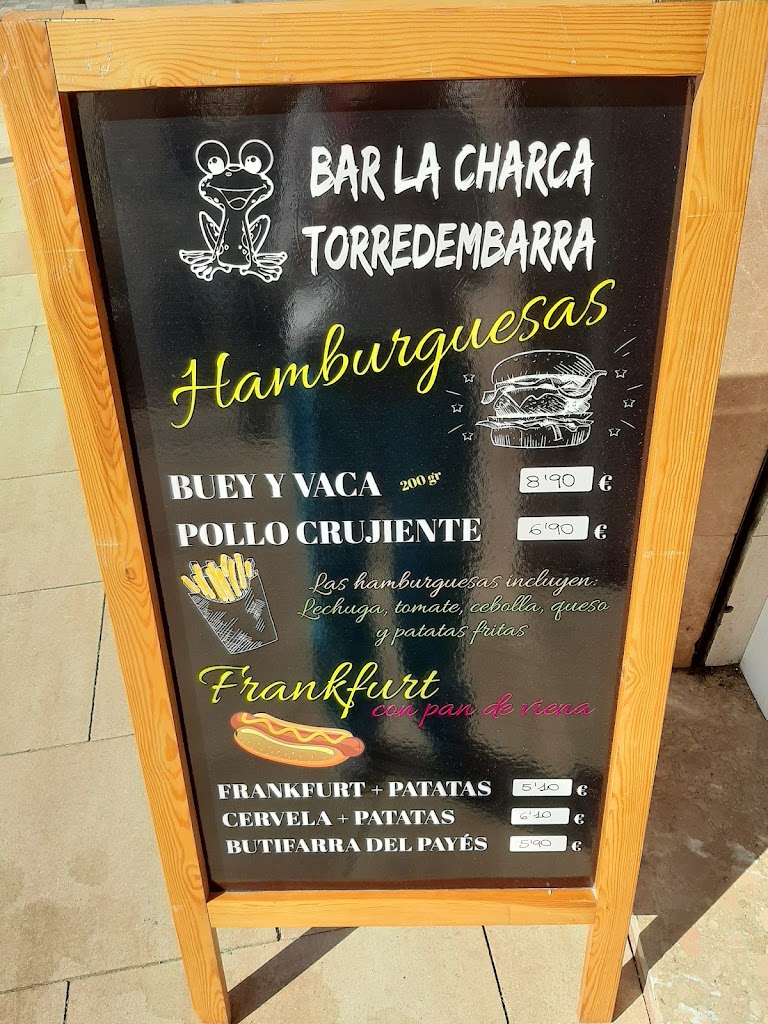 BAR LA CHARCA
TORREDEMBARRA
Hamburguesas
BUEY Y VACA 200 gr 8'90 €
POLLO CRUJIENTE 6'90 €
Las hamburguesas incluyen:
Lechuga, tomate, cebolla, queso
y patatas fritas
Frankfurt
con pan de viena
FRANKFURT + PATATAS 5'10 €
CERVELA + PATATAS 6'10 €
BUTIFARRA DEL PAYÉS 5'90 €